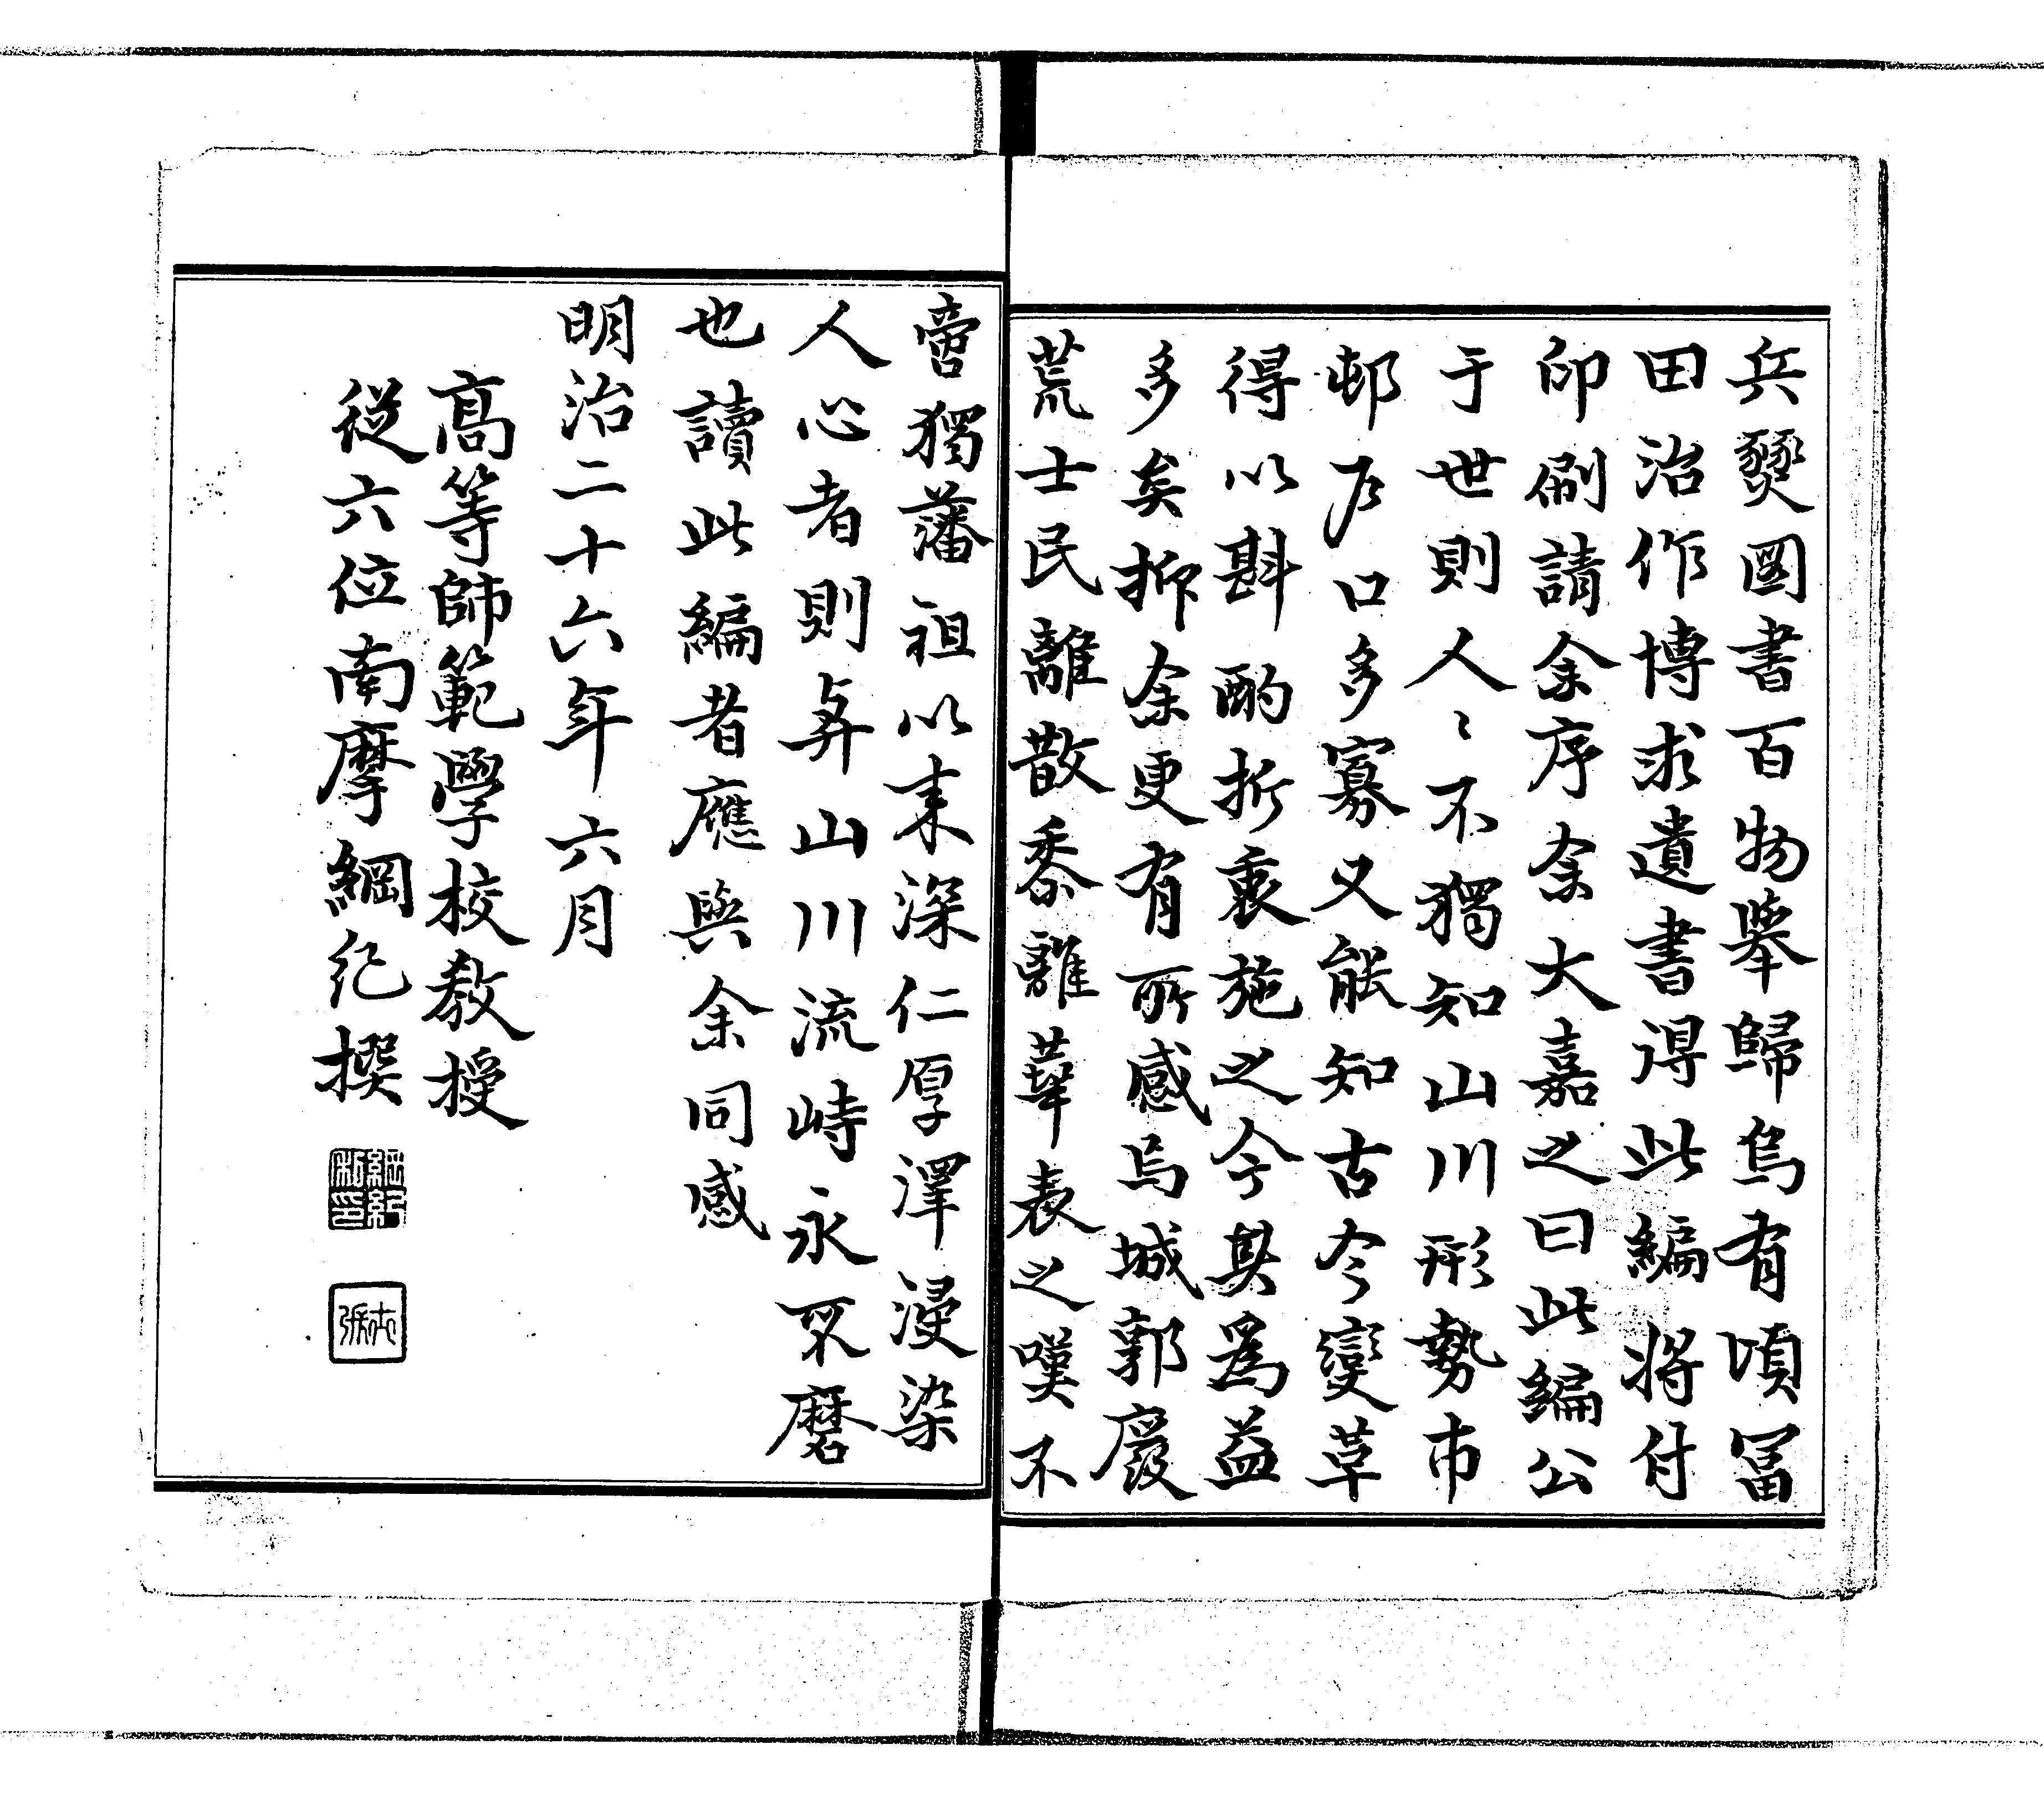 兵燹圖書百物擧歸烏有頃冨
田治作博求遺書得此編將付
印刷請余序余大嘉之曰此編公
于世則人〻不獨知山川形勢市
邨戶口多寡又能知古今變革
得以斟酌折衷施之今其爲益
多矣抑余更有所感焉城郭廢
荒士民離散黍離華表之嘆不
啻獨藩祖以來深仁厚澤浸染
人心者則與山川流峙永不磨
也讀此編者應與余同感
明治二十六年六月
高等師範學校教授
從六位南摩綱紀撰